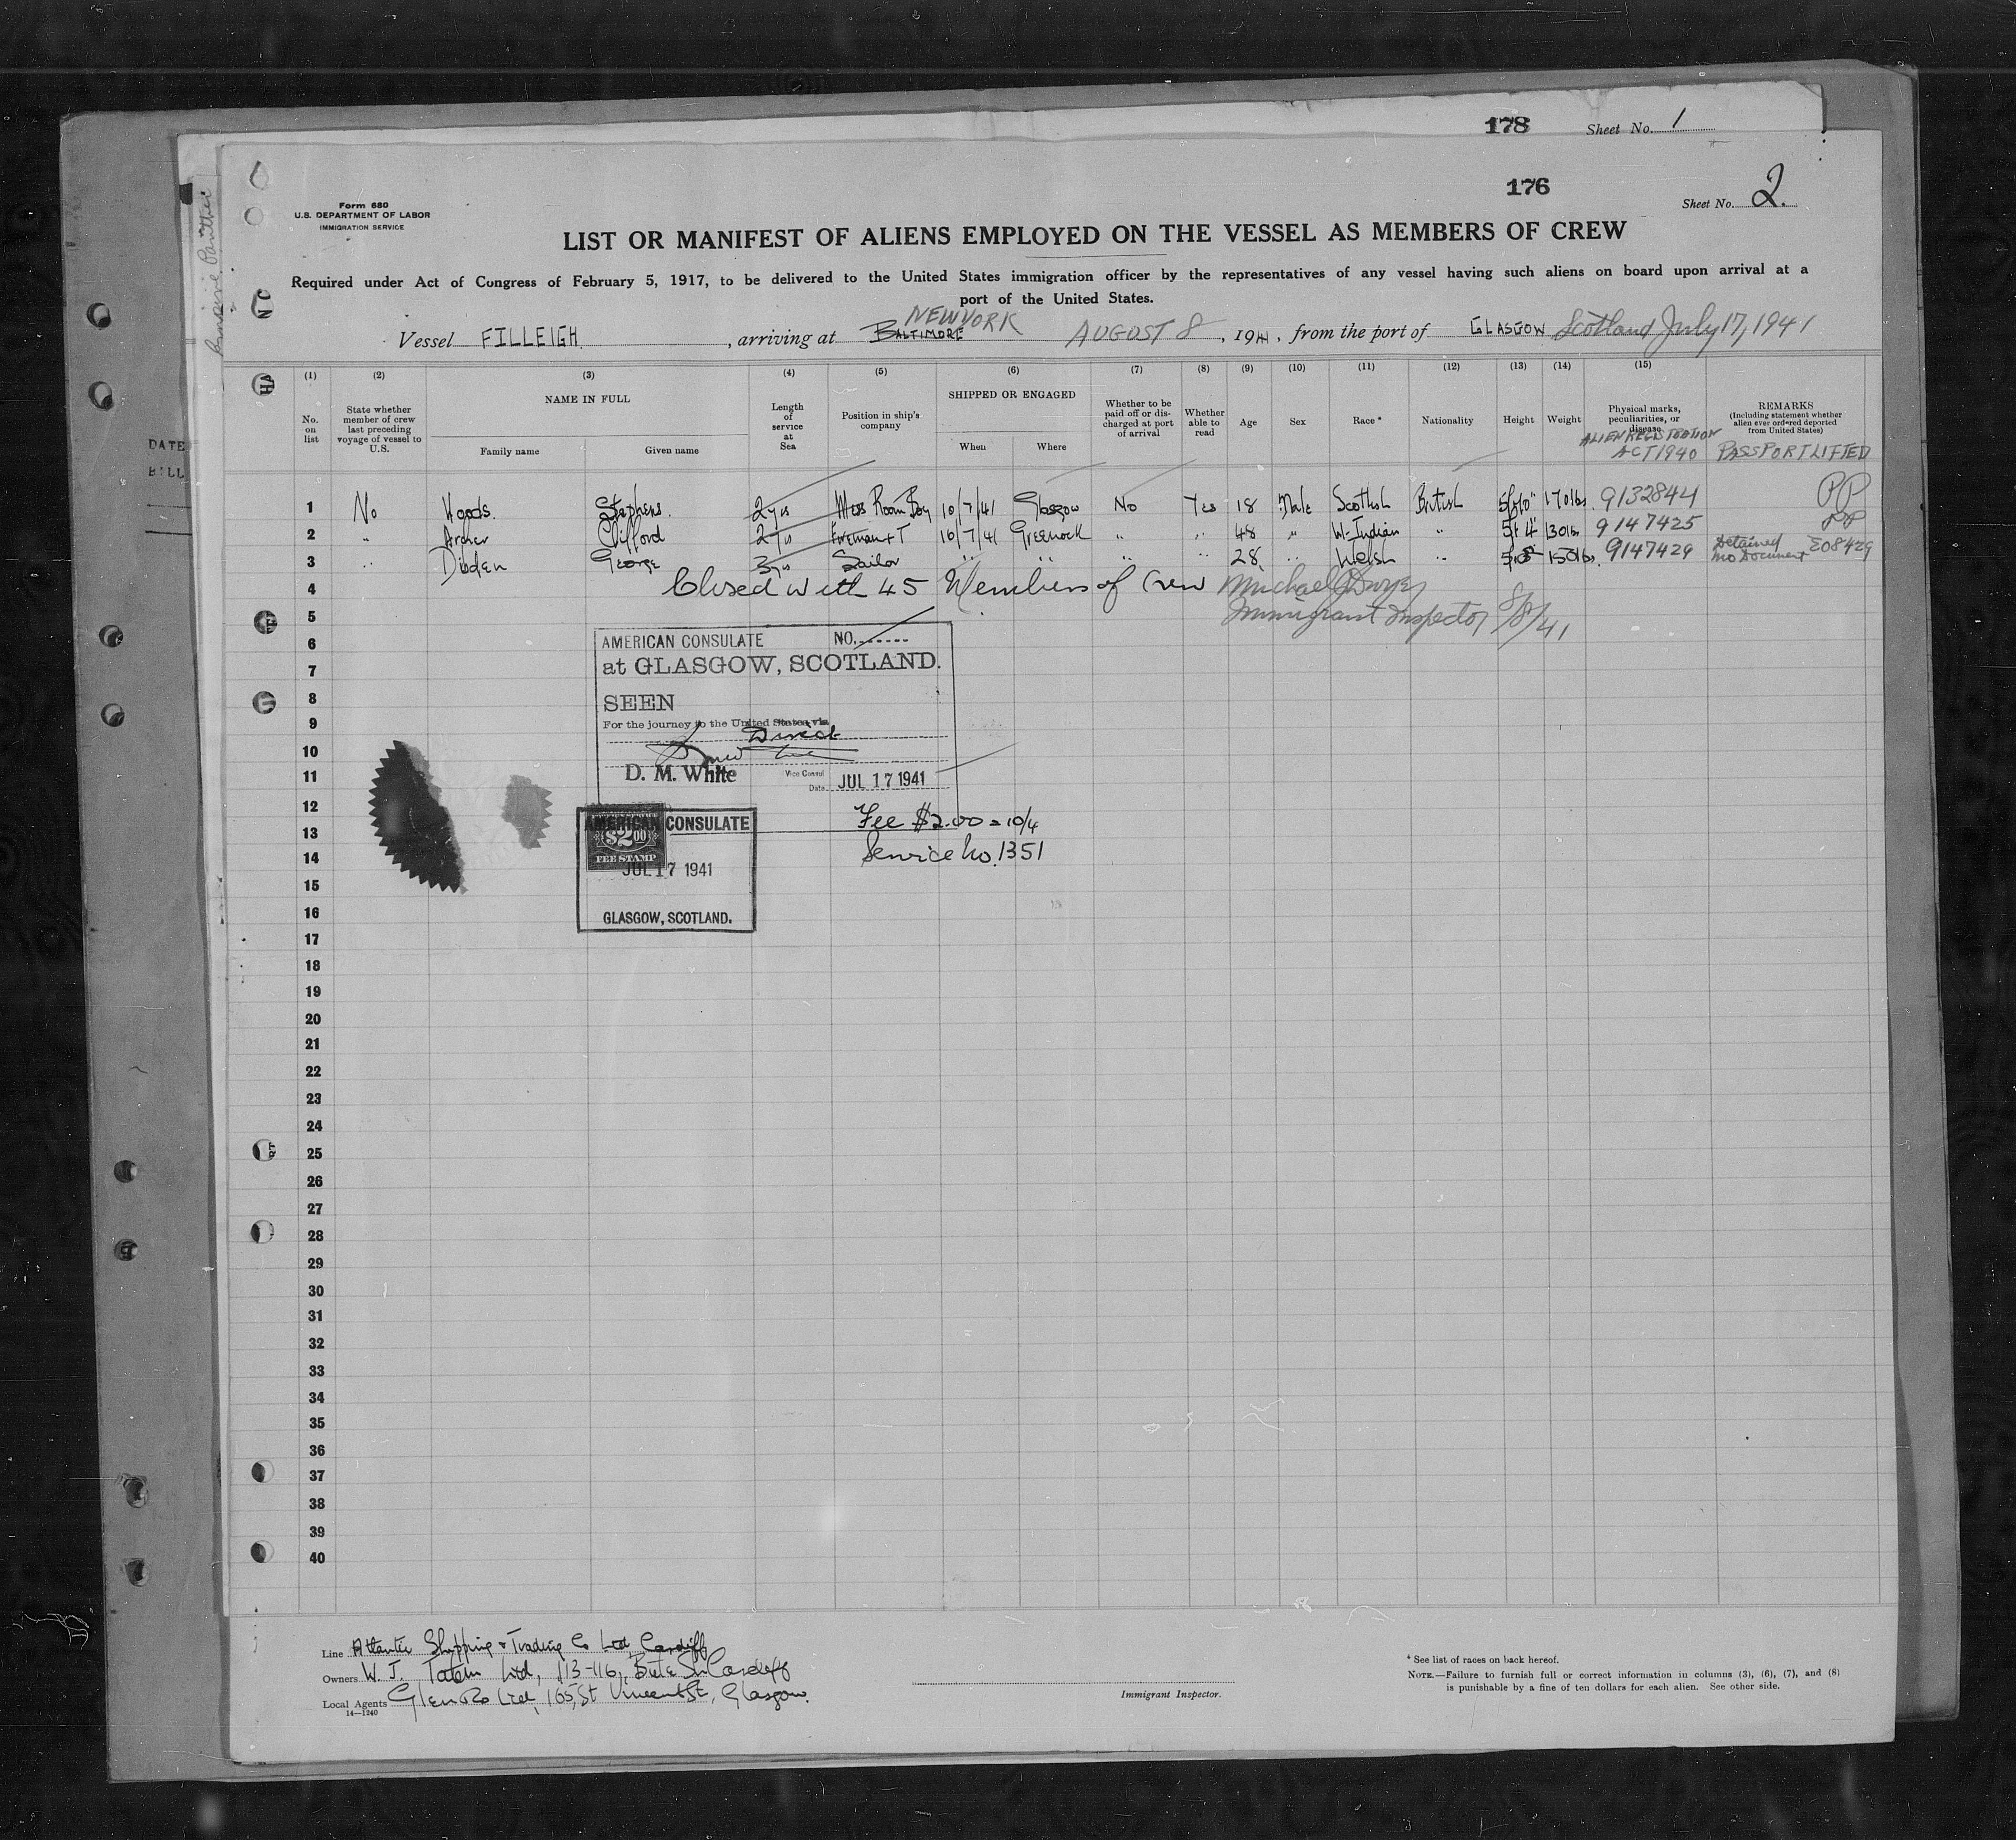 178 Sheet No. 1
176
Sheet No. 2.
Form 680
U.S. DEPARTMENT OF LABOR
IMMIGRATION SERVICE
LIST OR MANIFEST OF ALIENS EMPLOYED ON THE VESSEL AS MEMBERS OF CREW
Required under Act of Congress of February 5, 1917, to be delivered to the United States immigration officer by the representatives of any vessel having such aliens on board upon arrival at a
port of the United States.
NEW YORK
Vessel FILLEIGH, arriving at BALTIMORE AUGUST 8, 1941, from the port of GLASGOW Scotland July 17, 1941
DATE
BILL
(1) (2) (3) (4) (5) (6) (7) (8) (9) (10) (11) (12) (13) (14) (15)
No. on list
State whether member of crew last preceding voyage of vessel to U.S.
NAME IN FULL
Family name
Given name
Length of service at Sea
Position in ship's company
SHIPPED OR ENGAGED
When
Where
Whether to be paid off or discharged at port of arrival
Whether able to read
Age
Sex
Race *
Nationality
Height
Weight
Physical marks, peculiarities, or disease
ALIEN REGISTRATION ACT 1940
REMARKS
(Including statement whether alien ever ordered deported from United States)
PASSPORT LIFTED
1 No Woods. Stephens. 2 yrs Mess Room Boy 10/7/41 Glasgow No Yes 18 Male Scottish British 5ft 10" 170lbs. 9132844 PP
2 " Archer Clifford 2 yrs Fireman + T 16/7/41 Greenock " " 48 " W-Indian " 5ft 4" 130lbs 9147425 PP
3 " Dibden George 3 yrs Sailor " " " " 28 " Welsh " 150lbs. 9147429 Detained No Document E08429
4 Closed with 45 Members of Crew Michael J Dwyer
5 Immigrant Inspector 8/8/41
6
7
8
9
10
11
12
13
14
15
16
17
18
19
20
21
22
23
24
25
26
27
28
29
30
31
32
33
34
35
36
37
38
39
40
AMERICAN CONSULATE NO.
at GLASGOW, SCOTLAND.
SEEN
For the journey to the United States via
Direct
D. M. White Vice Consul
Date JUL 17 1941
Fee $2.00 = 10/4
Service No. 1351
AMERICAN CONSULATE
$2.00
FEE STAMP
JUL 17 1941
GLASGOW, SCOTLAND.
Line Atlantic Shipping & Trading Co Ltd, Cardiff
Owners W. J. Tatem Ltd, 113-116, Bute St. Cardiff
Local Agents Glen & Co Ltd, 165, St Vincent St., Glasgow.
14—1240
Immigrant Inspector.
* See list of races on back hereof.
NOTE.—Failure to furnish full or correct information in columns (3), (6), (7), and (8)
is punishable by a fine of ten dollars for each alien. See other side.